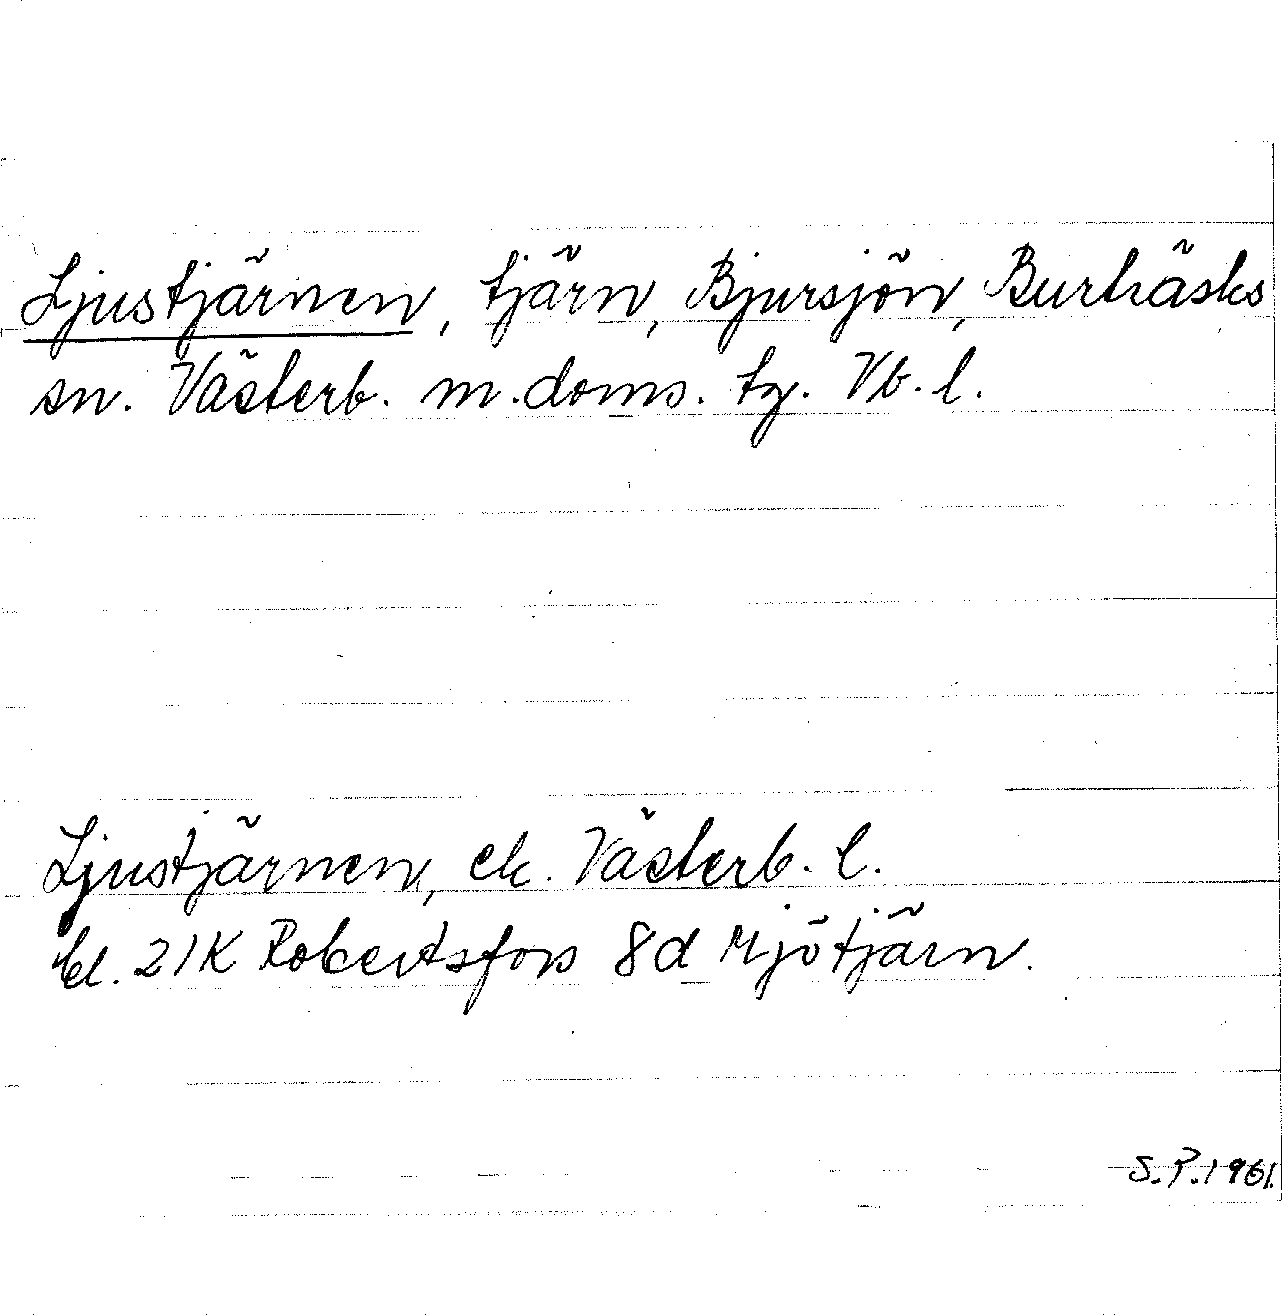 Ljustjärnen, tjärn, Bjursjön, Burträsks
sn. Västerb. m. doms. tg. Vb. l.
Ljustjärnen, ek. Västerb. l.
bl. 21K Robertsfors 8d Mjötjärn.
S.P. 1961.